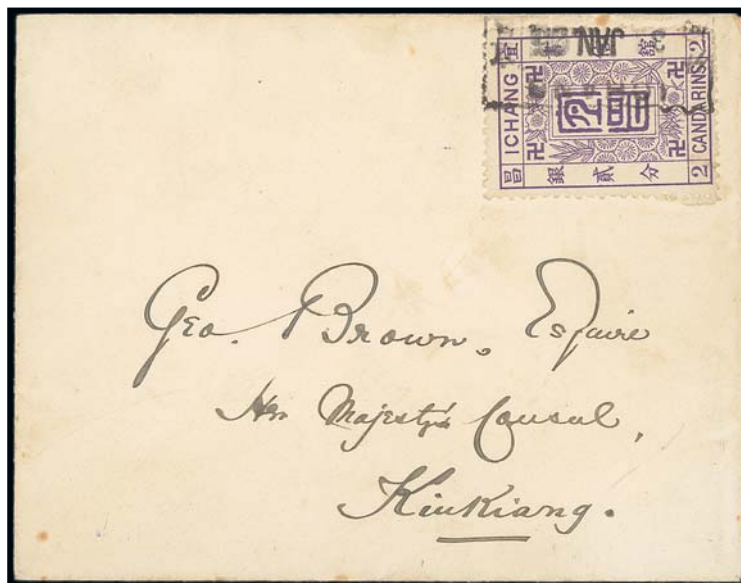 JAN
ICHANG
CANDARINS
2
2
銀貳分
宜
昌
館
Geo. Brown. Esquire
Her Majesty's Consul,
Kiukiang.